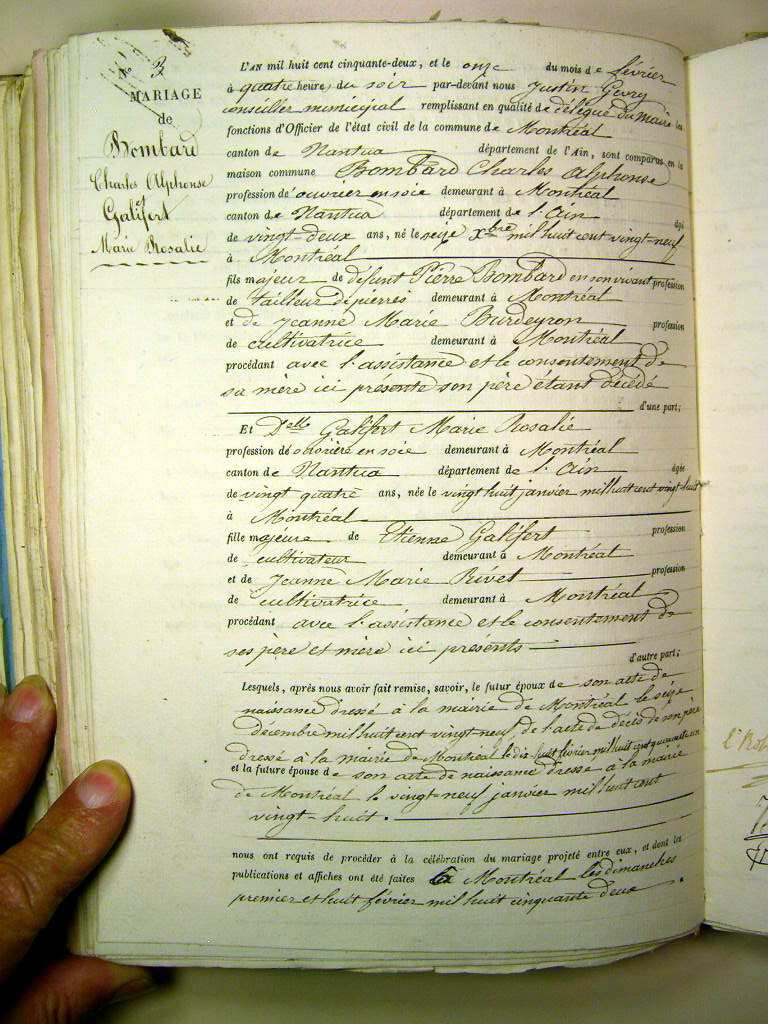 N° 3
MARIAGE
de
Bombard
Charles Alphonse
Galifert
Marie Rosalie
L'AN mil huit cent cinquante-deux, et le onze du mois de février
à quatre heures du soir par-devant nous Justin Gevry
conseiller municipal remplissant en qualité de délégué du Maire les
fonctions d'Officier de l'état civil de la commune de Montréal
canton de Nantua département de l'Ain, sont comparus, en la
maison commune Bombard Charles Alphonse
profession d'ouvrier en soie demeurant à Montréal
canton de Nantua département de l'Ain âgé
de vingt-deux ans, né le seize Xbre mil huit cent vingt-neuf
à Montréal
fils majeur de défunt Pierre Bombard en son vivant profession
de tailleur de pierres demeurant à Montréal
et de Jeanne Marie Burdeyron profession
de cultivatrice demeurant à Montréal
procédant avec l'assistance et le consentement de
sa mère ici présente son père étant décédé
d'une part;
Et Delle Galifert Marie Rosalie
profession de ouvrière en soie demeurant à Montréal
canton de Nantua département de l'Ain âgée
de vingt quatre ans, née le vingt huit janvier mil huit cent vingt-huit
à Montréal
fille majeure de Etienne Galifert profession
de cultivateur demeurant à Montréal
et de Jeanne Marie Rivet profession
de cultivatrice demeurant à Montréal
procédant avec l'assistance et le consentement de
ses père et mère ici présents
d'autre part;
Lesquels, après nous avoir fait remise, savoir, le futur époux de son acte de
naissance dressé à la mairie de Montréal le seize
Décembre mil huit cent vingt neuf, de l'acte de décès de son père
dressé à la mairie de Montréal le dix huit février mil huit cent
et la future épouse de son acte de naissance dressé à la mairie
de Montréal le vingt-neuf janvier mil huit cent
vingt-huit.
nous ont requis de procéder à la célébration du mariage projeté entre eux, et dont les
publications et affiches ont été faites à Montréal les dimanches
premier et huit février mil huit cinquante deux.